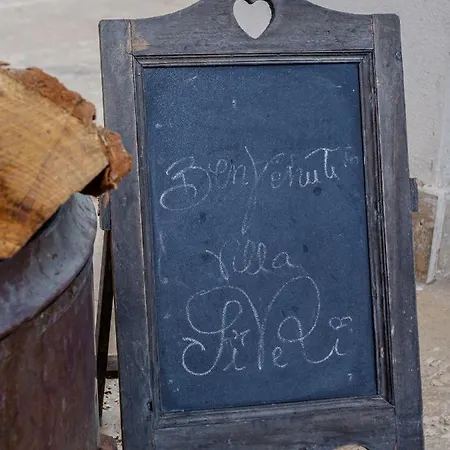 Benvenuti
Villa
SiVeRi